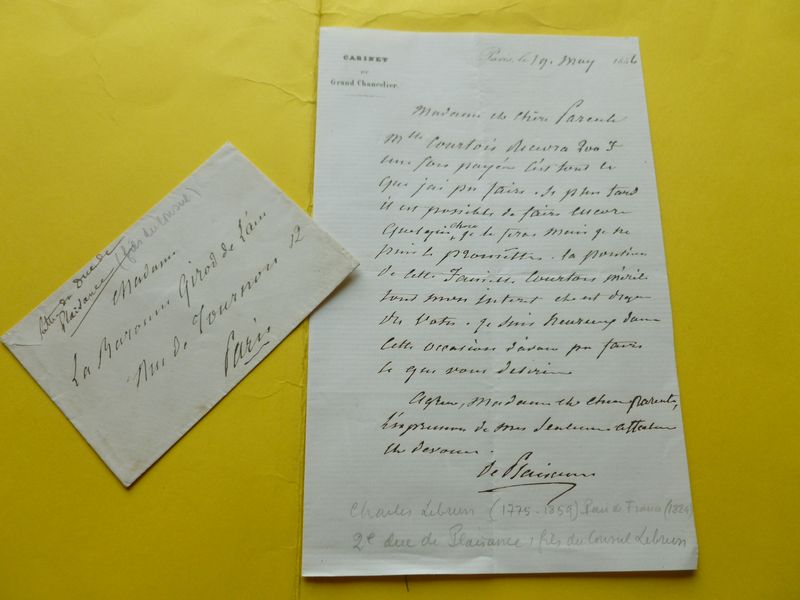 CABINET
DU
Grand Chancelier.
Paris, le 19. May 1856
Madame et chère Parente
Mlle Courtois recevra 200 F
une fois payée c'est tout ce
que j'ai pu faire. Si plus tard
il est possible de faire encore
quelque chose, je le ferai mais je ne
puis le promettre. la position
de cette famille Courtois mérite
tout mon interet et est digne
du votre. je suis heureux dans
cette occasion d'avoir pu faire
ce que vous desiriez
Agréez, Madame et chère parente,
l'expression de mes sentimens affectueux
et devoués.
de Plaisance
Charles Lebrun (1775-1859) Pair de France (1824)
2e duc de Plaisance, fils du Consul Lebrun
lettre du Duc de
Plaisance (fils du Consul)
Madame
La Baronne Girod de l'ain
Rue de Tournon 12
Paris